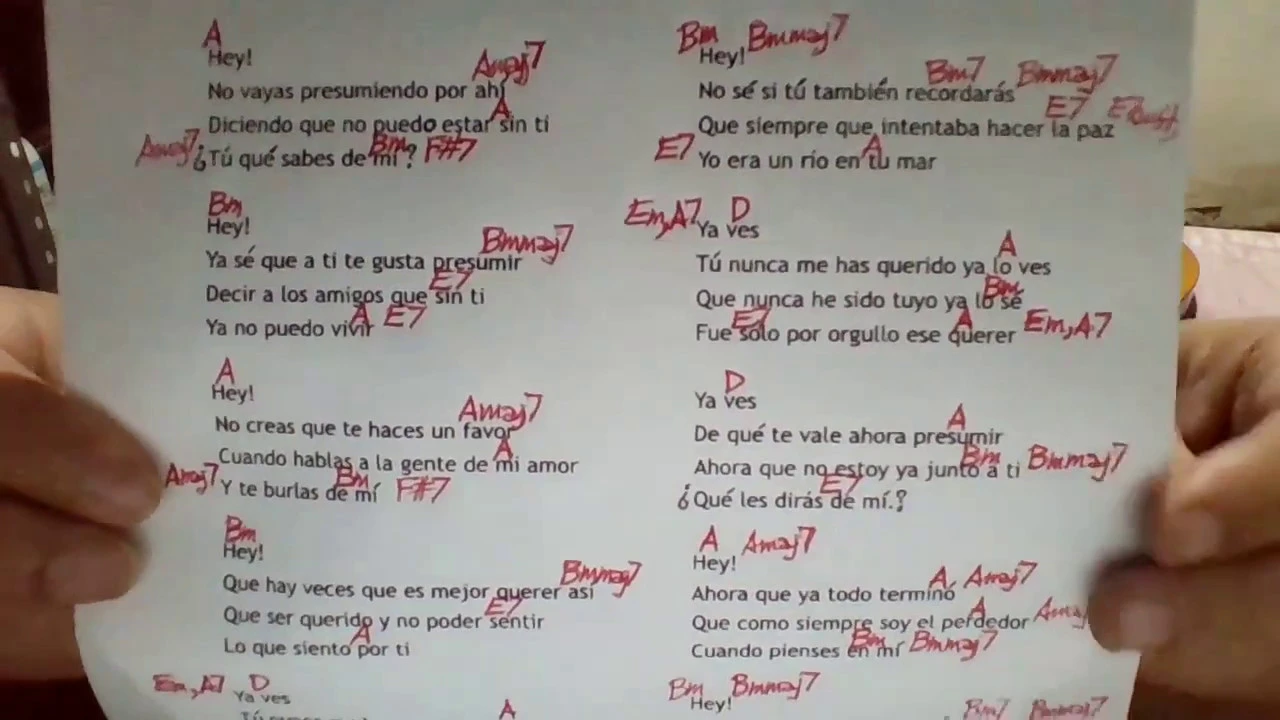 A
Hey!
Amaj7
No vayas presumiendo por ahí
A
Diciendo que no puedo estar sin ti
Amaj7 Bm F#7
¿Tú qué sabes de mí?
Bm
Hey!
Bmmaj7
Ya sé que a ti te gusta presumir
E7
Decir a los amigos que sin ti
A E7
Ya no puedo vivir
A
Hey!
Amaj7
No creas que te haces un favor
A
Cuando hablas a la gente de mi amor
Amaj7 Bm F#7
Y te burlas de mí
Bm
Hey!
Bmmaj7
Que hay veces que es mejor querer así
E7
Que ser querido y no poder sentir
A
Lo que siento por ti
Em,A7 D
Ya ves
A
Bm Bmmaj7
Hey!
Bm7 Bmmaj7
No sé si tú también recordarás
E7
Que siempre que intentaba hacer la paz
E7 A
Yo era un río en tu mar
Em,A7 D
Ya ves
A
Tú nunca me has querido ya lo ves
Bm
Que nunca he sido tuyo ya lo sé
E7 A Em,A7
Fue sólo por orgullo ese querer
D
Ya ves
A
De qué te vale ahora presumir
Bm Bmmaj7
Ahora que no estoy ya junto a ti
E7
¿Qué les dirás de mí.?
A Amaj7
Hey!
A, Amaj7
Ahora que ya todo terminó
A
Que como siempre soy el perdedor
Bm Bmmaj7
Cuando pienses en mí
Bm Bmmaj7
Hey!
Bm7 Bmmaj7